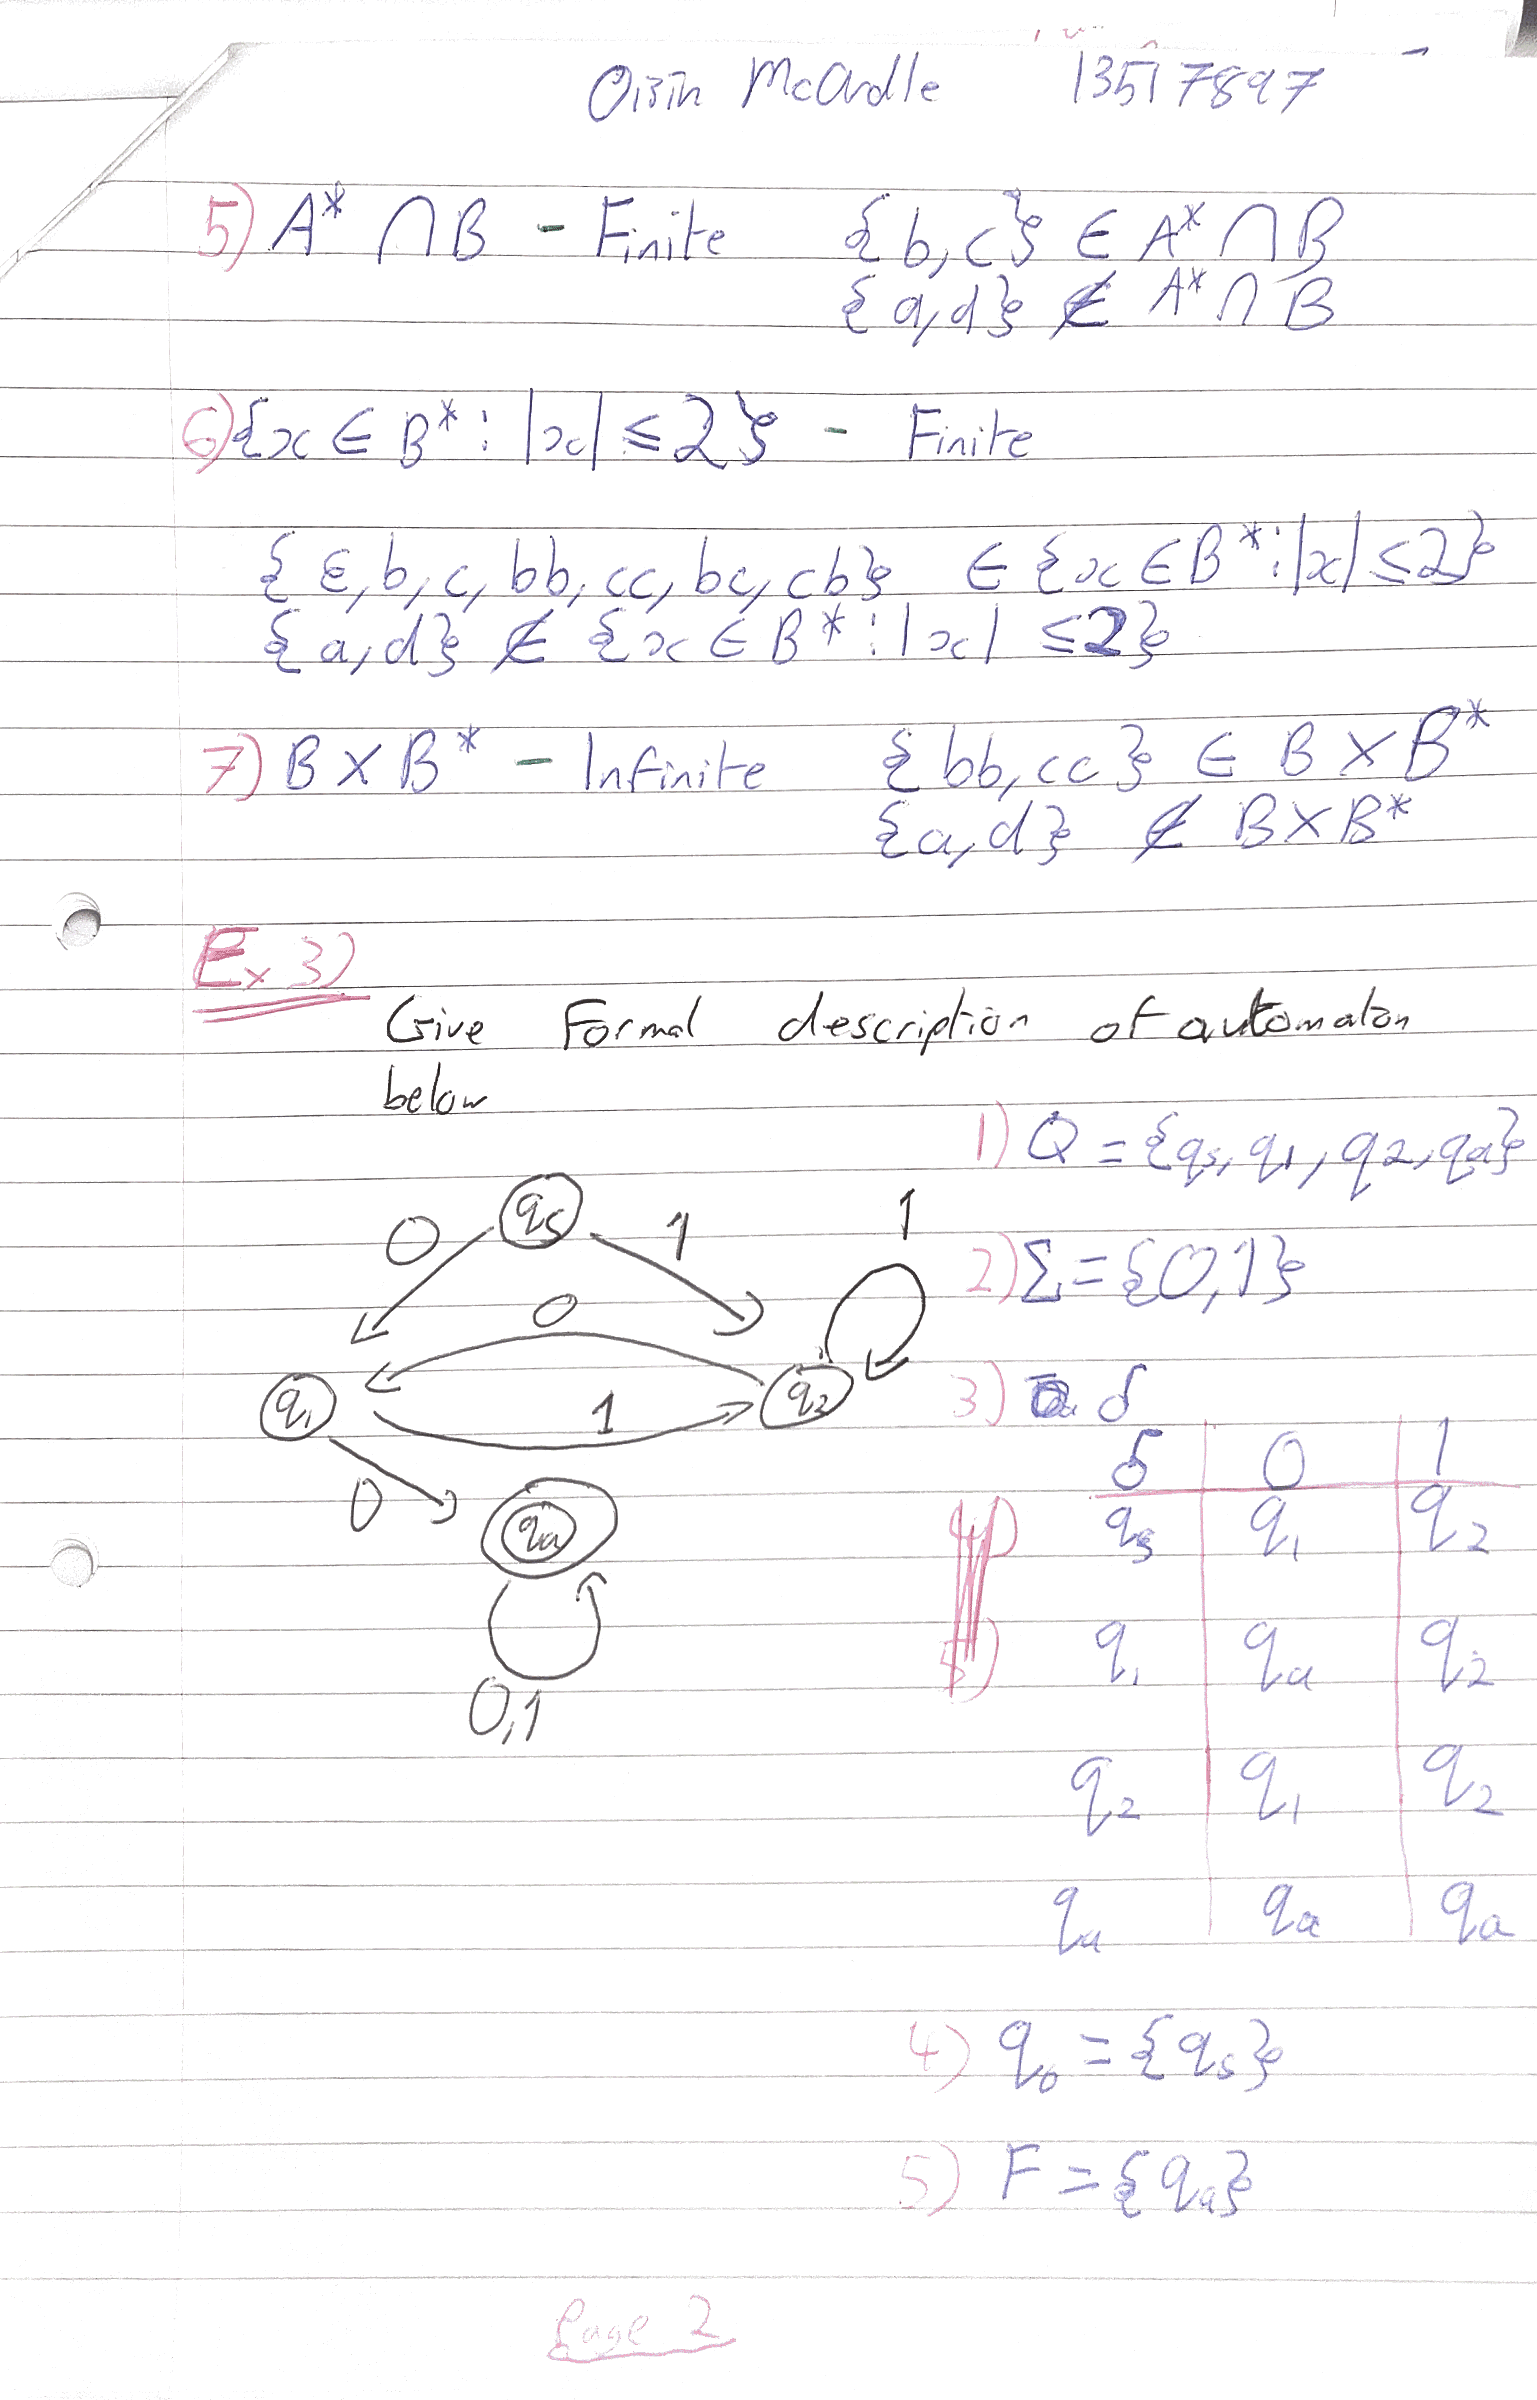 Oisín McArdle 13517897
5) A* ∩ B - Finite {b, c} ∈ A* ∩ B
{a, d} ∉ A* ∩ B
6) {x ∈ B* : |x| ≤ 2} - Finite
{ε, b, c, bb, cc, bc, cb} ∈ {x ∈ B* : |x| ≤ 2}
{a, d} ∉ {x ∈ B* : |x| ≤ 2}
7) B × B* - Infinite {bb, cc} ∈ B × B*
{a, d} ∉ B × B*
Ex 3)
Give Formal description of automaton
below
qs
0
1
1
0
q1
q2
1
0
qa
0,1
1) Q = {qs, q1, q2, qa}
2) Σ = {0, 1}
3) δ
δ 0 1
qs q1 q2
q1 qa q2
q2 q1 q2
qa qa qa
4) q0 = {qs}
5) F = {qa}
Page 2